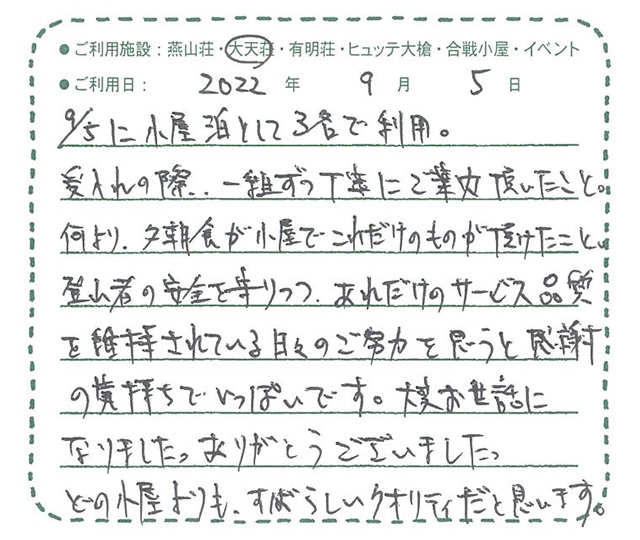 ●ご利用施設：燕山荘・大天荘・有明荘・ヒュッテ大槍・合戦小屋・イベント
●ご利用日： 2022 年 9 月 5 日
9/5に小屋泊として3名で利用。
受入れの際、一組ずつ丁寧にご案内頂いたこと。
何より、夕朝食が小屋でこれだけのものが頂けたこと。
登山者の安全を守りつつ、あれだけのサービス品質
を維持されている日々のご努力を思うと感謝
の気持ちでいっぱいです。大変お世話に
なりました。ありがとうございました。
どの小屋よりも、すばらしいクオリティだと思います。